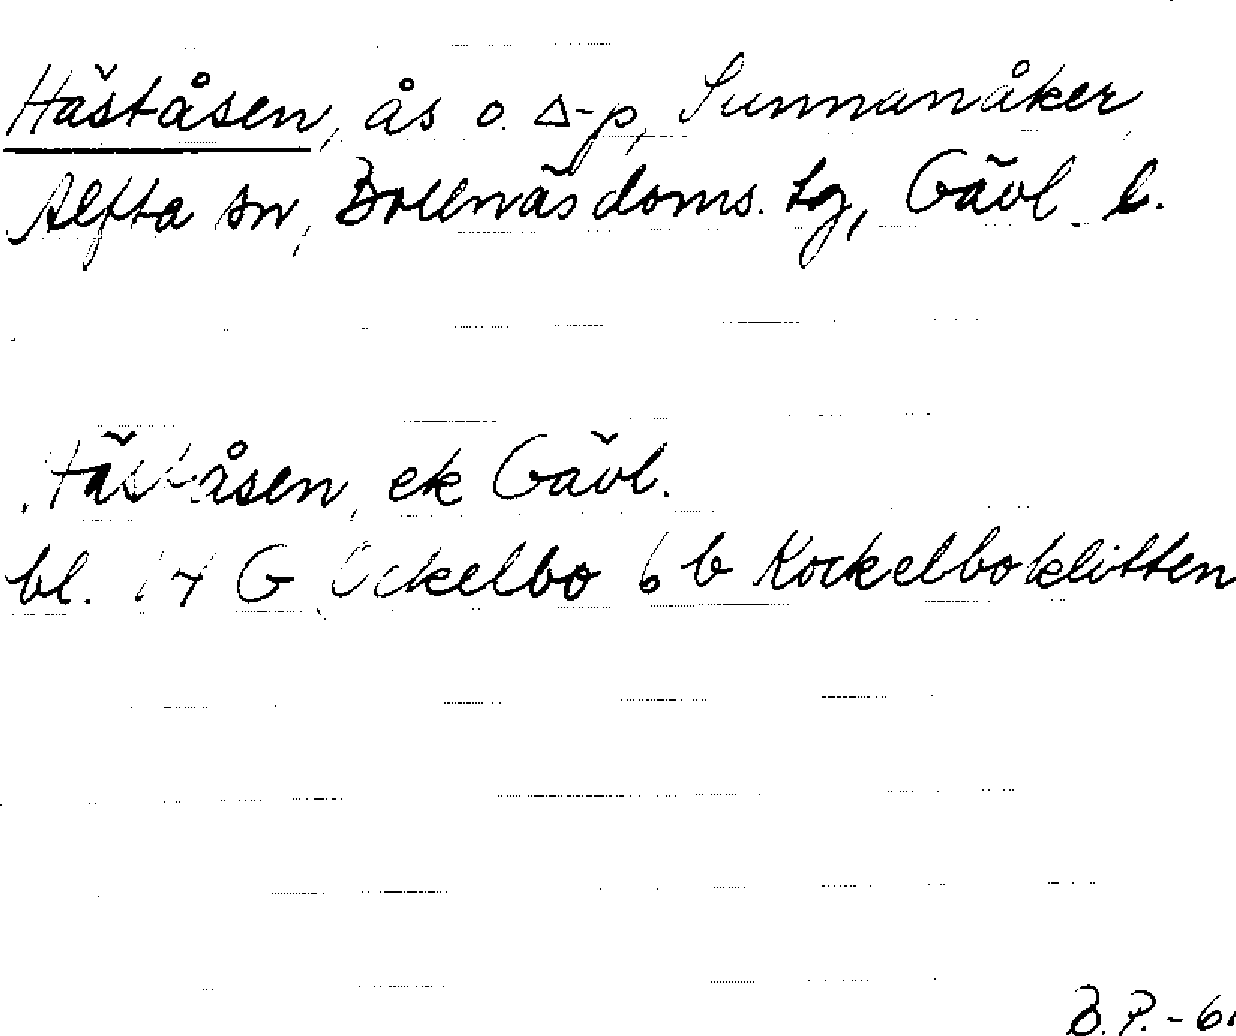 Häståsen, ås o. Δ-p, Sunnanåker,
Alfta sn, Bollnäs doms. tg, Gävl. l.
Häståsen, ek Gävl.
bl. 14 G Ockelbo 6 b Kockelboklitten
B. P. -6